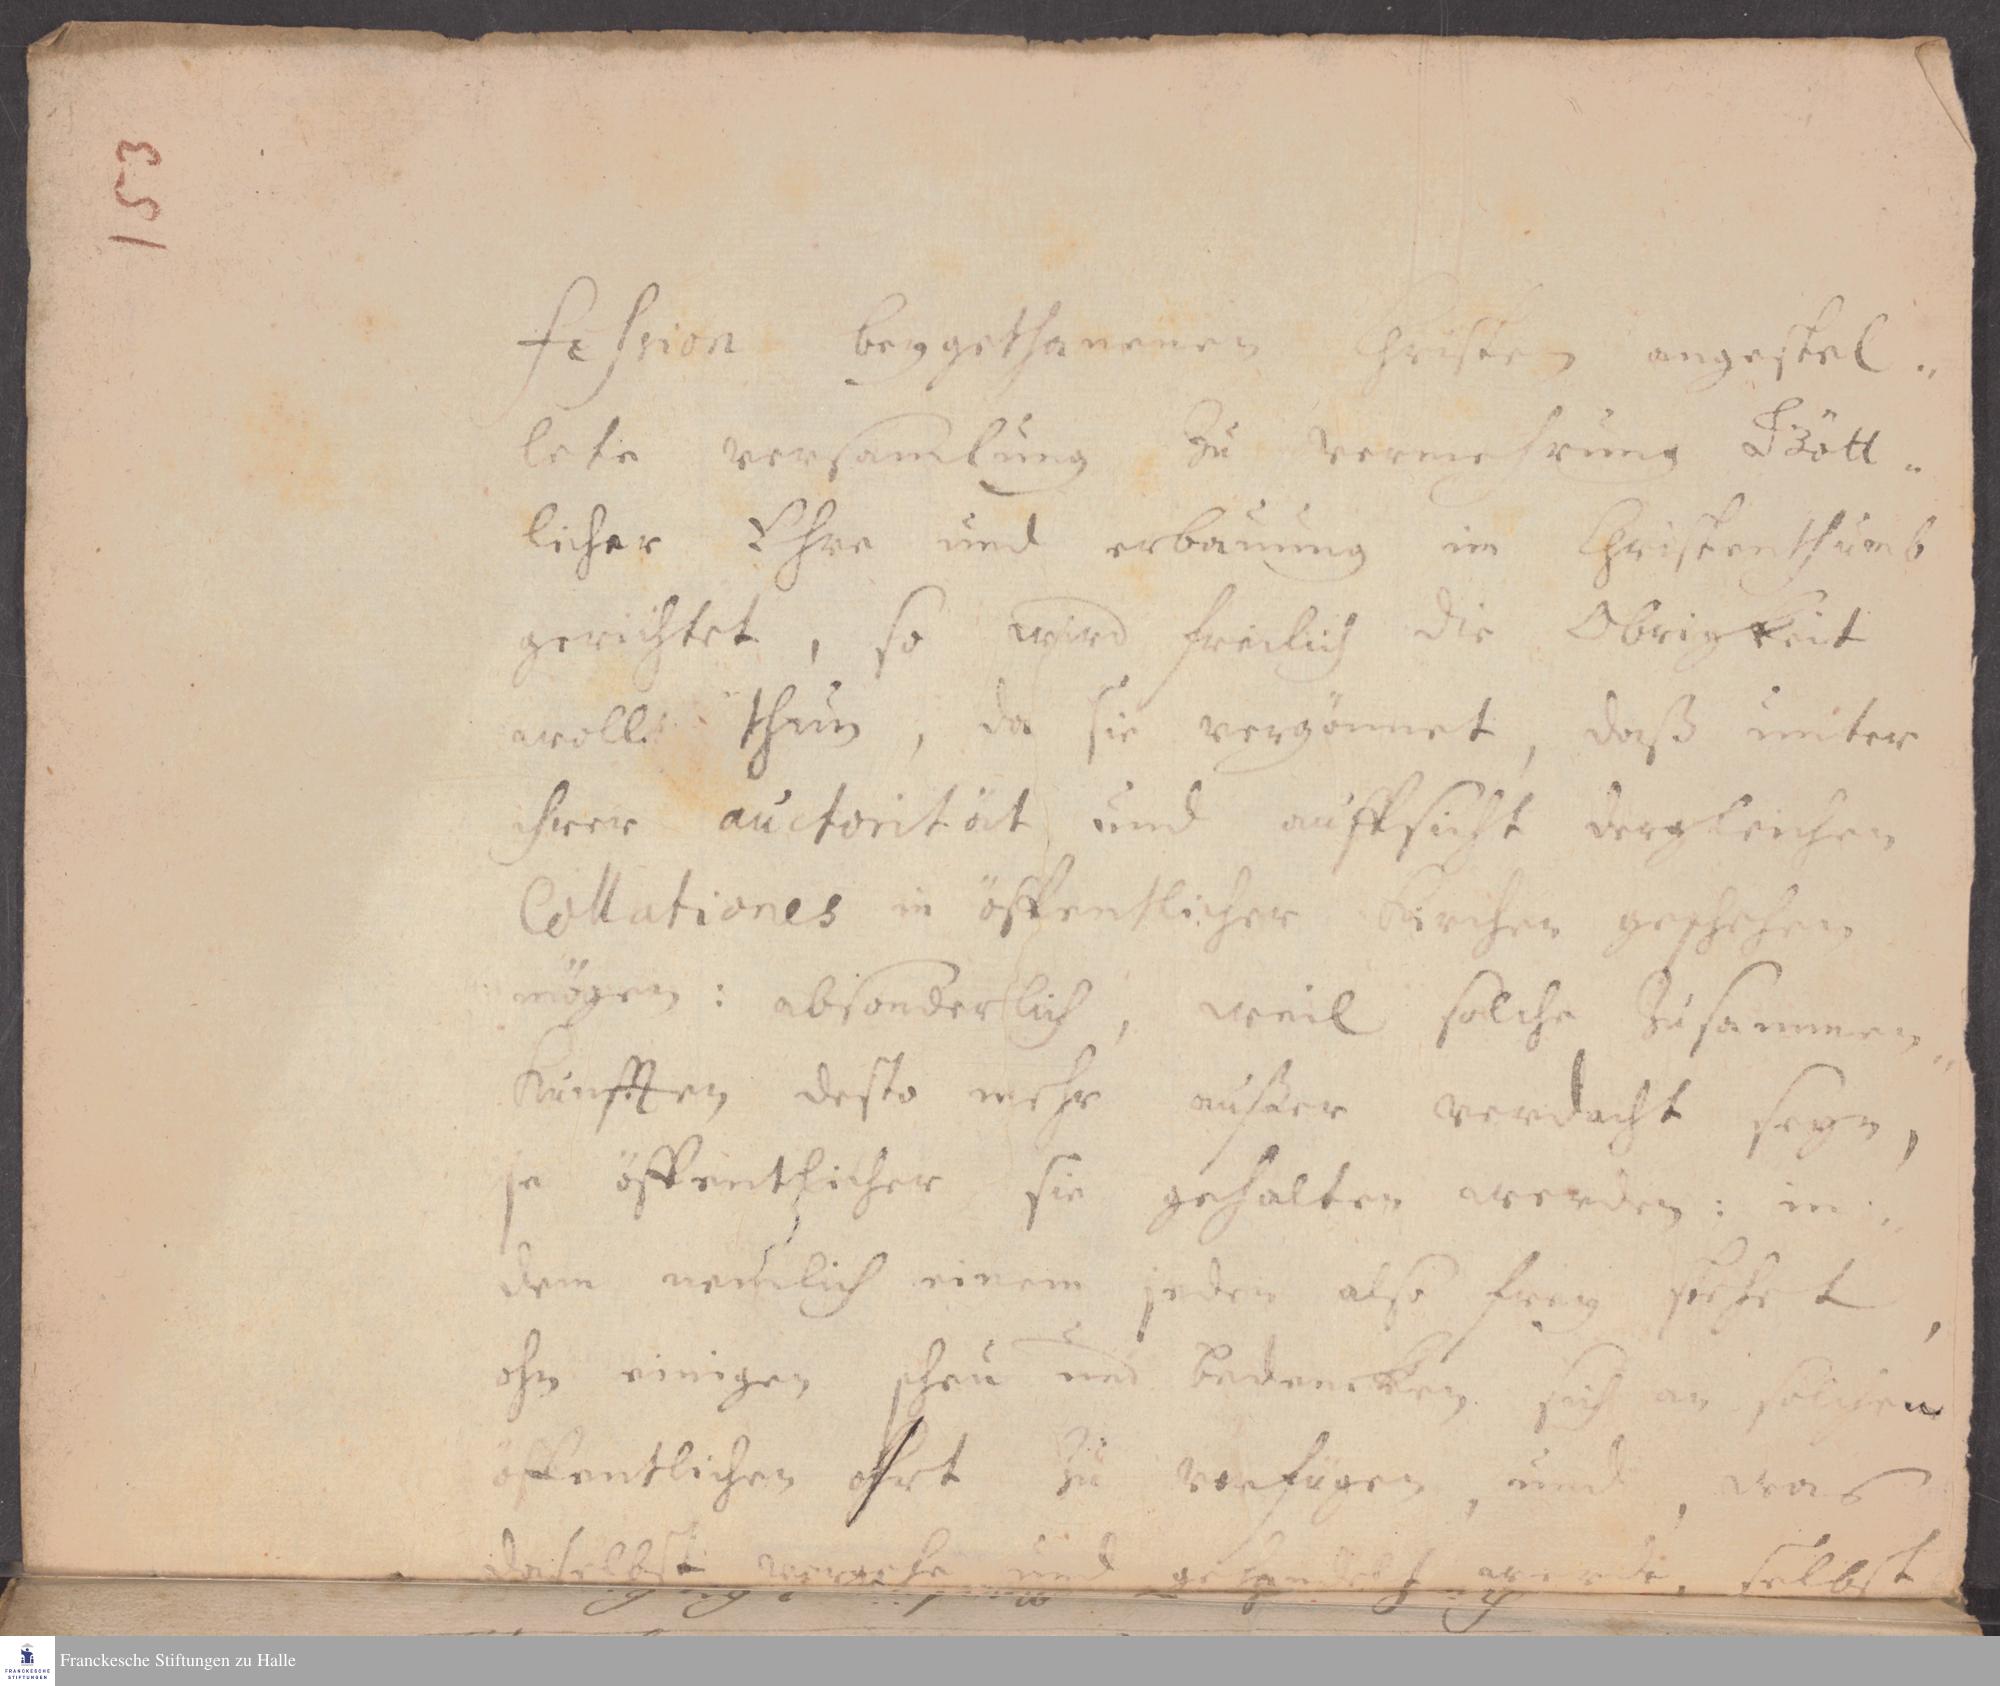 153
fession beygethanenen Christen angestel„
lete versamlung zu vermehrung Gött„
licher Ehre und erbauung im Christenthumb
gerichtet, so wird freilich die Obrigkeit
woll thun, da sie vergönnet, daß unter
ihrer auctorität und auffsicht dergleichen
Collationes in öffentlicher Kirchen geschehen
mögen: absonderlich, weil solche Zusammen„
Kunfften desto mehr außer verdacht seyn,
je öffentlicher sie gehalten werden: in„
dem nemlich einem jeden also frey stehet,
ohn einigen scheu und bedencken sich an solchen
öffentlichen ohrt zu verfügen, und, was
daselbst und gehandelt werde, selbst
Franckesche Stiftungen zu Halle
FRANCKESCHE
STIFTUNGEN